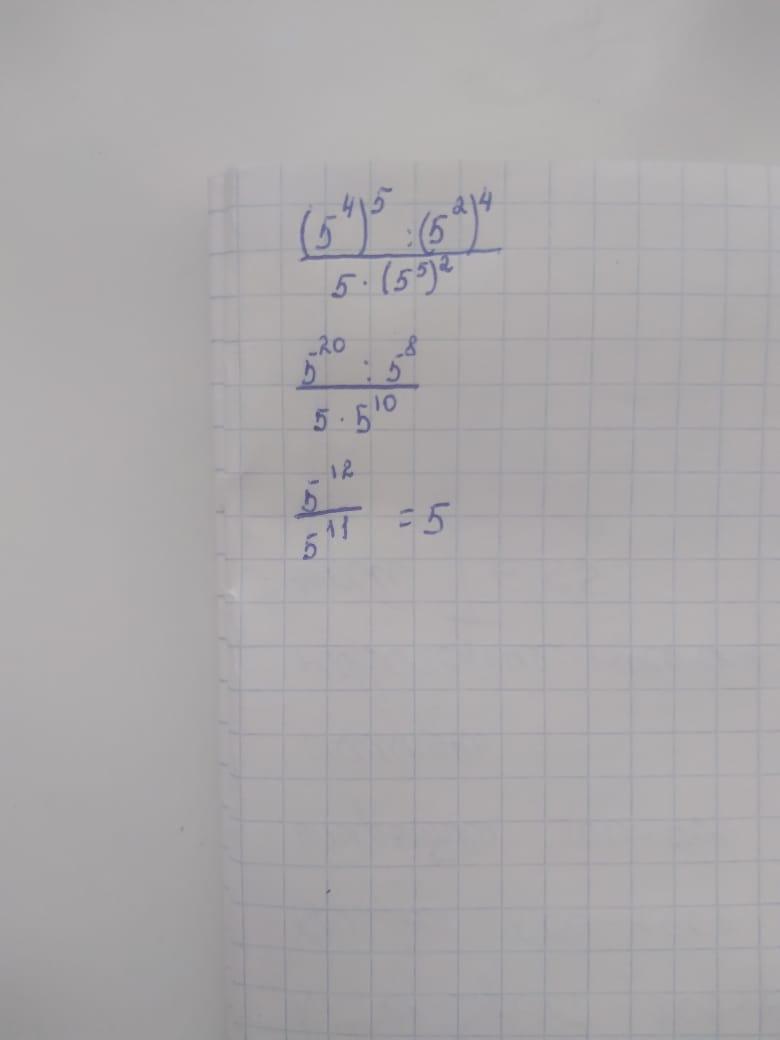 (5⁴)⁵ : (5²)⁴
5 · (5⁵)²
5²⁰ : 5⁸
5 · 5¹⁰
5¹²
5¹¹ = 5